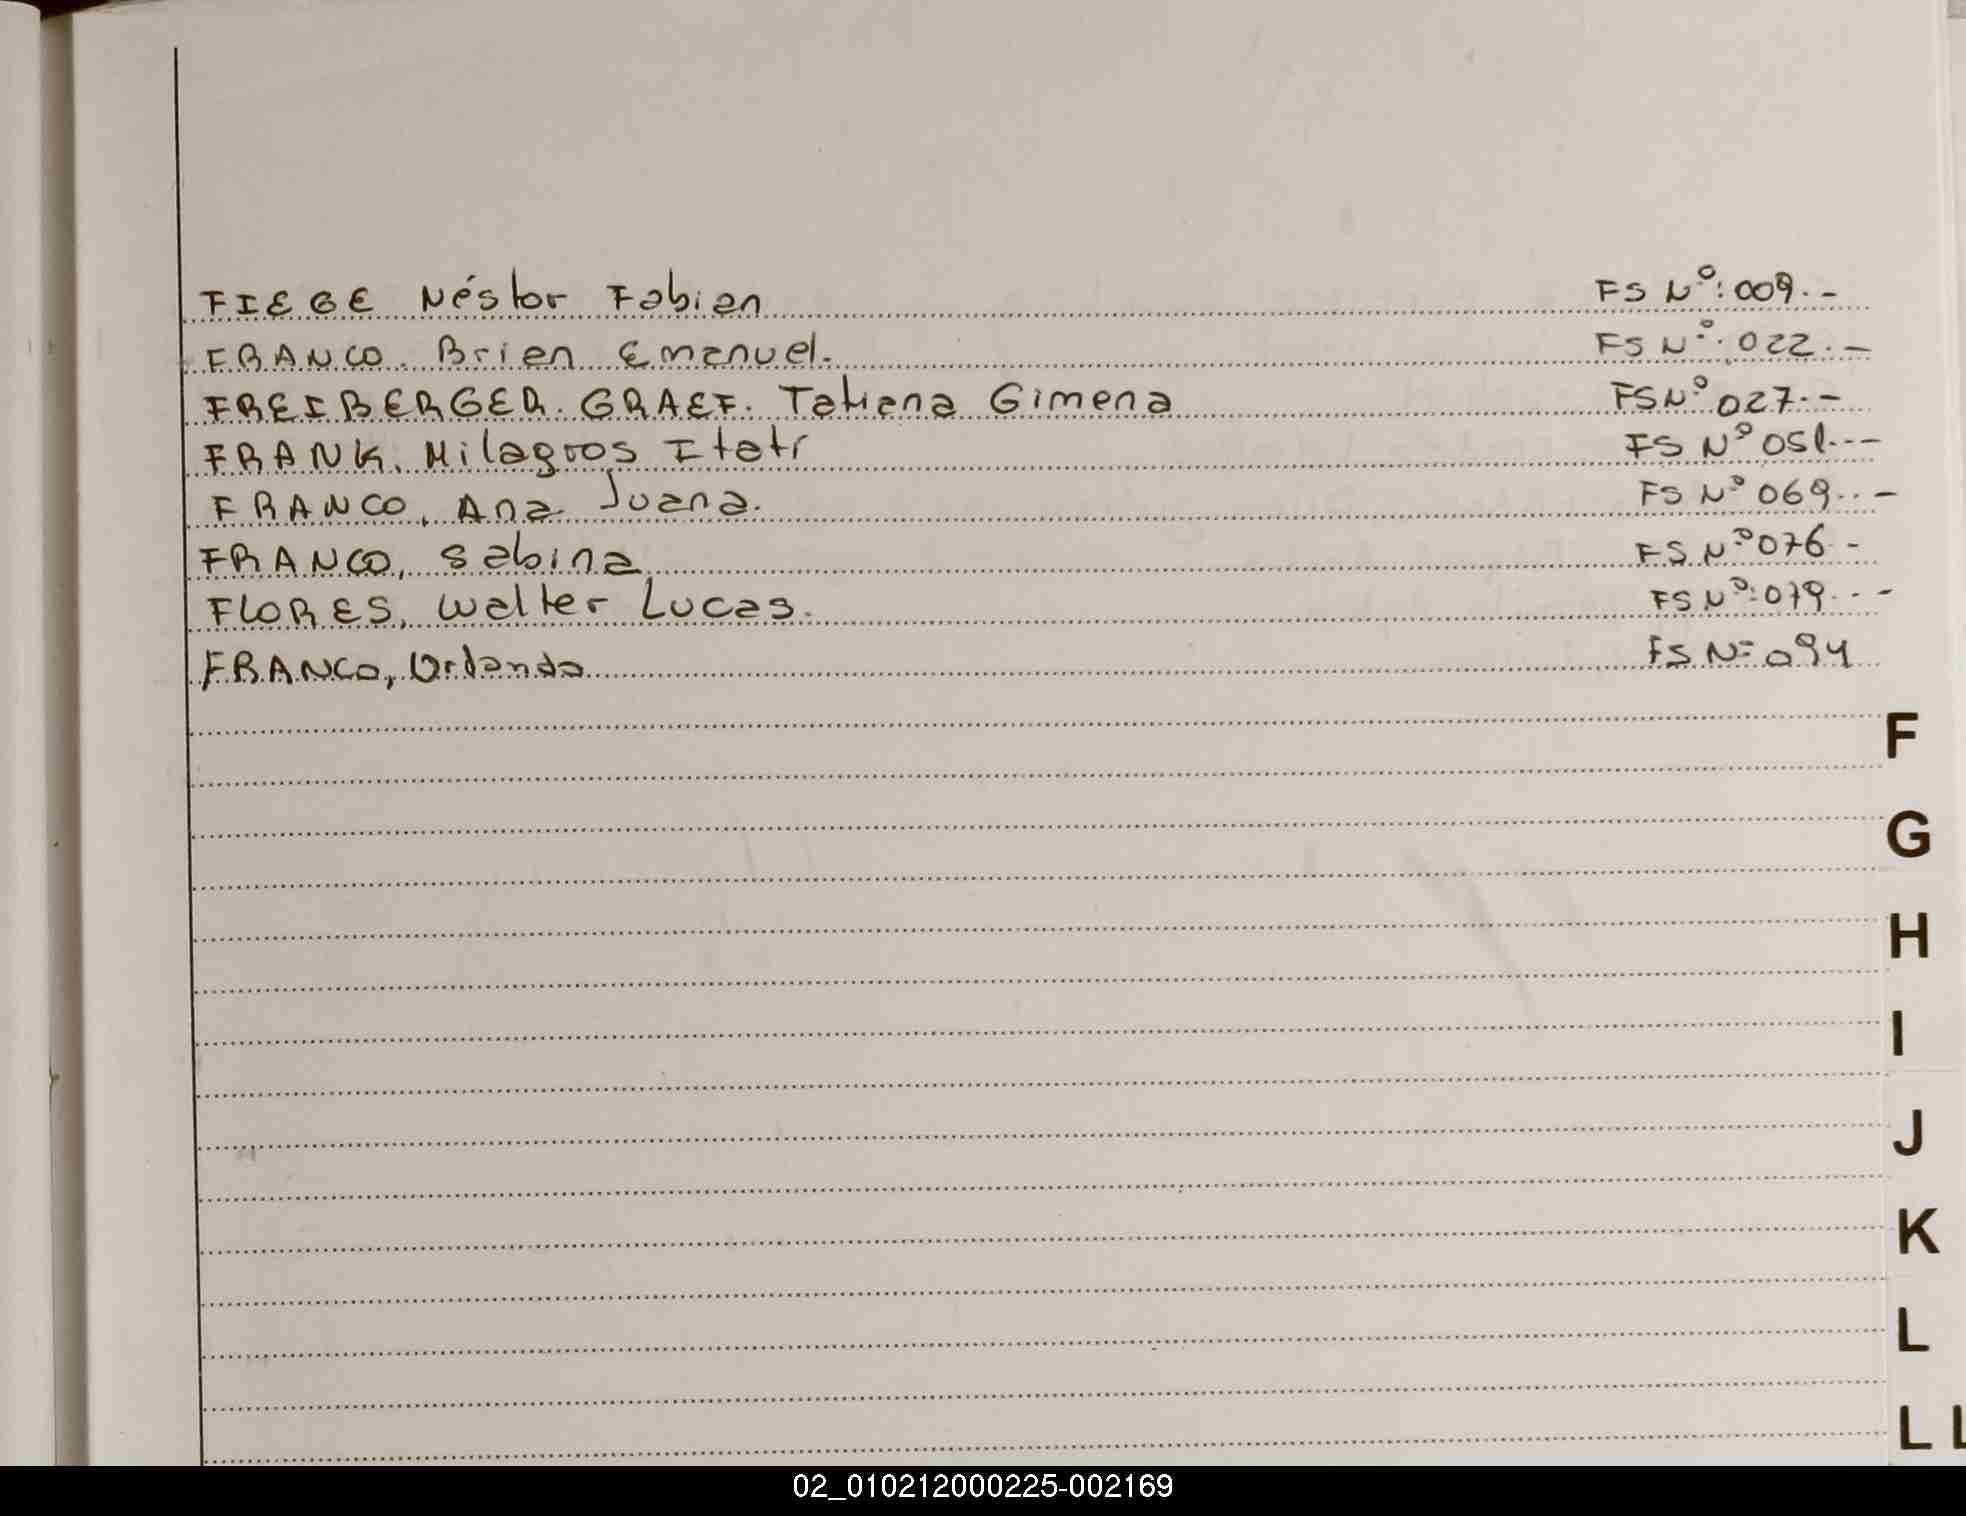 FIEGE Néstor Fabian FS Nº: 009.-
FRANCO. Brian Emanuel. FS Nº. 022.-
FREIBERGER. GRAEF. Tatiana Gimena FS Nº 027.-
FRANK. Milagros Itatí FS Nº 051.--
FRANCO, Ana Juana. FS Nº 069..-
FRANCO, Sabina FS Nº 076-
FLORES, Walter Lucas. FS Nº: 079.--
FRANCO, Orlando FS Nº 094
F
G
H
I
J
K
L
LL
02_010212000225-002169